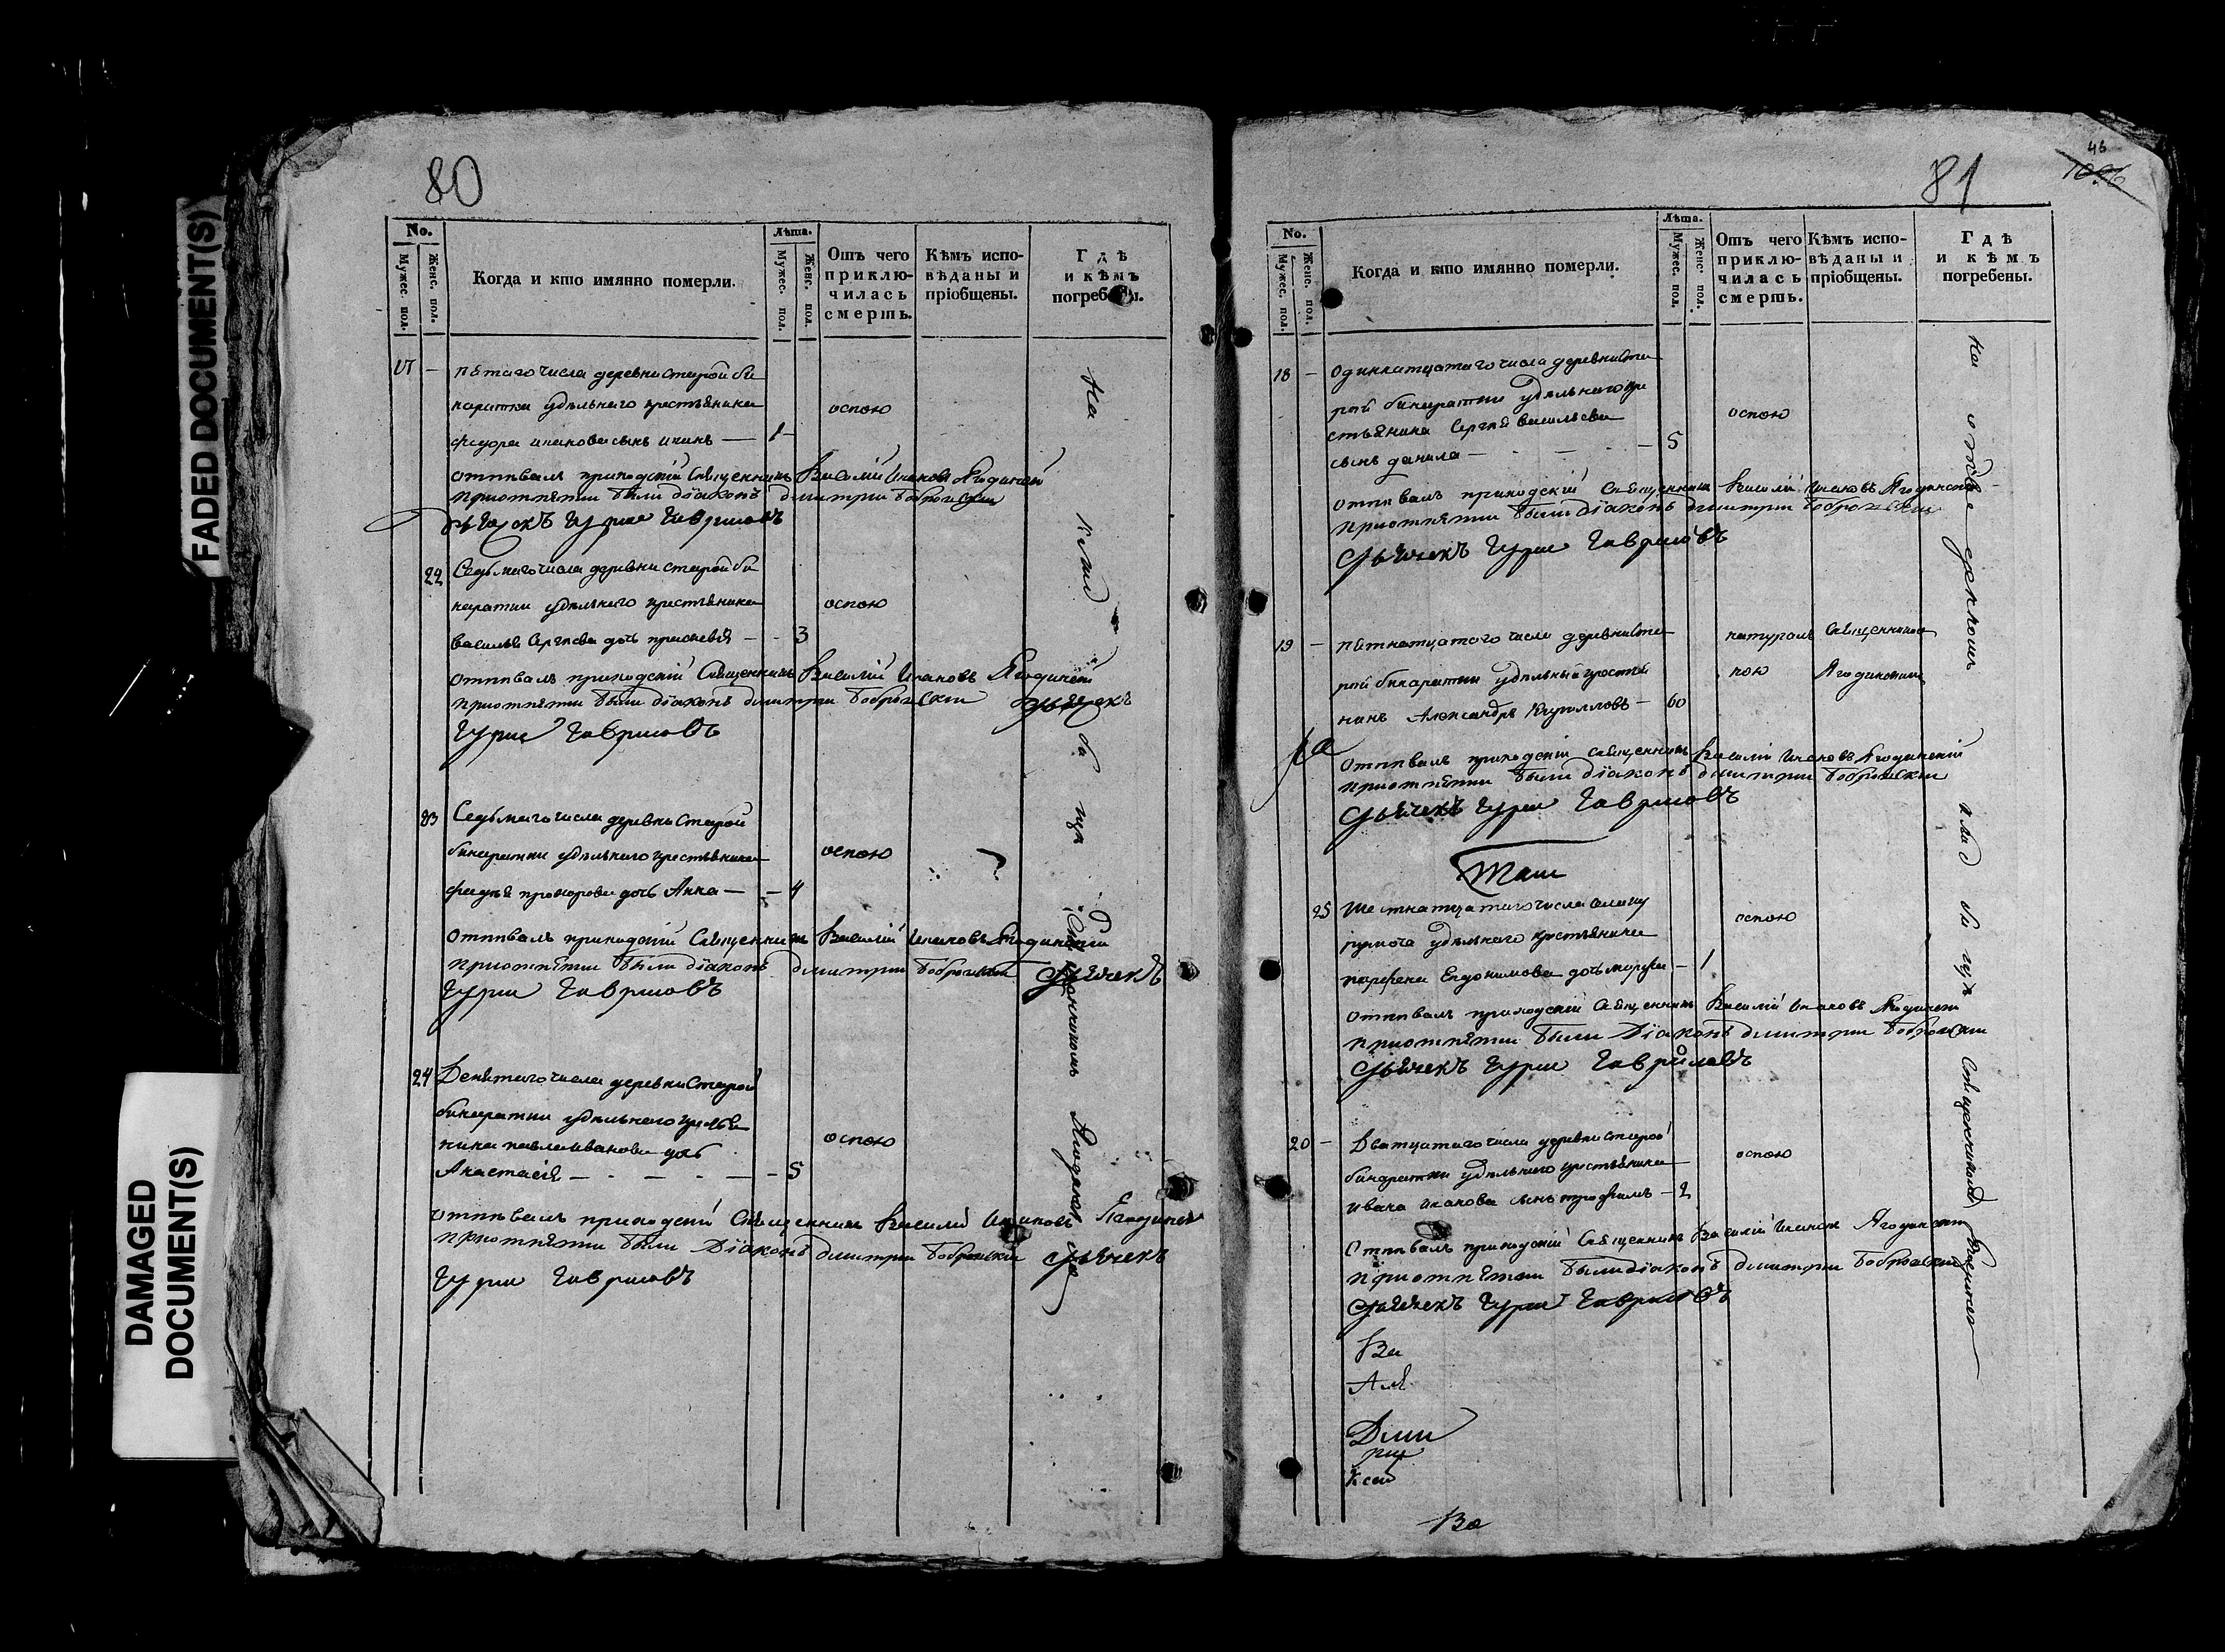 FADED DOCUMENT(S)
DAMAGED DOCUMENT(S)
80
No.
Мужес. пол.
Женс. пол.
Когда и кто имянно померли.
Лѣта.
Мужес. пол.
Женс. пол.
Отъ чего приклю-
чилась смерть.
Кѣмъ испо-
вѣданы и
пріобщены.
Гдѣ
и кѣмъ
погребены.
17 — пятаго числа деревни Старой би
наратки удѣльнаго крестьянина
федора иванова сынъ иванъ — 1 —
оспою
отпѣвалъ приходскій Священникъ Василій Ивановъ Ягодинскій
приотпѣтіи были діаконъ димитрии бобровскии
дьячекъ Гурии Гавриловъ
22 Седьмаго числа деревни старой би
наратки удѣльнаго крестьянина
василья Сергѣева дочь — 3
оспою
отпѣвалъ приходскій Священникъ Василій Ивановъ Ягодинскій
приотпѣтіи были діаконъ димитрии бобровскии дьячекъ
Гурии Гавриловъ
23 Седьмаго числа деревни Старой
бинаратки удѣльнаго крестьянина
прохорова дочь Анна — — 4
оспою
отпѣвалъ приходскій Священникъ Василій Ивановъ Ягодинскій
приотпѣтіи были діаконъ димитрии бобровскии дьячекъ
Гурии Гавриловъ
24 Девятаго числа деревни Старой
бинаратки удѣльнаго кресья
нина павла иванова дочь
Анастасія — — — 5
оспою
отпѣвалъ приходскій Священникъ Василій Ивановъ Ягодинскій
приотпѣтіи были Діаконъ димитрии бобровскии дьячекъ
Гурии Гавриловъ
На
Священникомъ Ягодинскимъ
81
46
No.
Мужес. пол.
Женс. пол.
Когда и кто имянно померли.
Лѣта.
Мужес. пол.
Женс. пол.
Отъ чего
приклю-
чилась
смерть.
Кѣмъ испо-
вѣданы и
пріобщены.
Гдѣ
и кѣмъ
погребены.
18 — одиннатцатаго числа деревни Ста
рой бинаратки удѣльнаго кре
стьянина Сергѣя васильева
сынъ данила — — — 5
оспою
отпѣвалъ приходскій Священникъ Василій Ивановъ Ягодинскій
приотпѣтіи были діаконъ димитрии бобровскии
дьячекъ Гурии Гавриловъ
19 — пятнатцатаго числа деревни Ста
рой бинаратки удѣльный крестья
нинъ Александръ Кирилловъ — 60
натураль
ною
Священникомъ
Ягодинскимъ
отпѣвалъ приходскій Священникъ Василій Ивановъ Ягодинскій
приотпѣтіи были діаконъ димитрии бобровскии
дьячекъ Гурии Гавриловъ
25 Шестнатцатаго числа села
удѣльнаго крестьянина
парфена дочь марфа — 1
оспою
отпѣвалъ приходскій Священникъ Василій Ивановъ Ягодинскій
приотпѣтіи были Діаконъ димитрии бобровскии
дьячекъ Гурии Гавриловъ
20 — Дватцатаго числа деревни старой
бинаратки удѣльнаго крестьянина
ивана иванова сынъ трофимъ — 2
оспою
Отпѣвалъ приходскій Священникъ Василій Ивановъ Ягодинскій
приотпѣтіи были діаконъ димитрии бобровскии
дьячекъ Гурии Гавриловъ
Ва
Дми
рии
Во
На отведенномъ
кладбищѣ Священникомъ